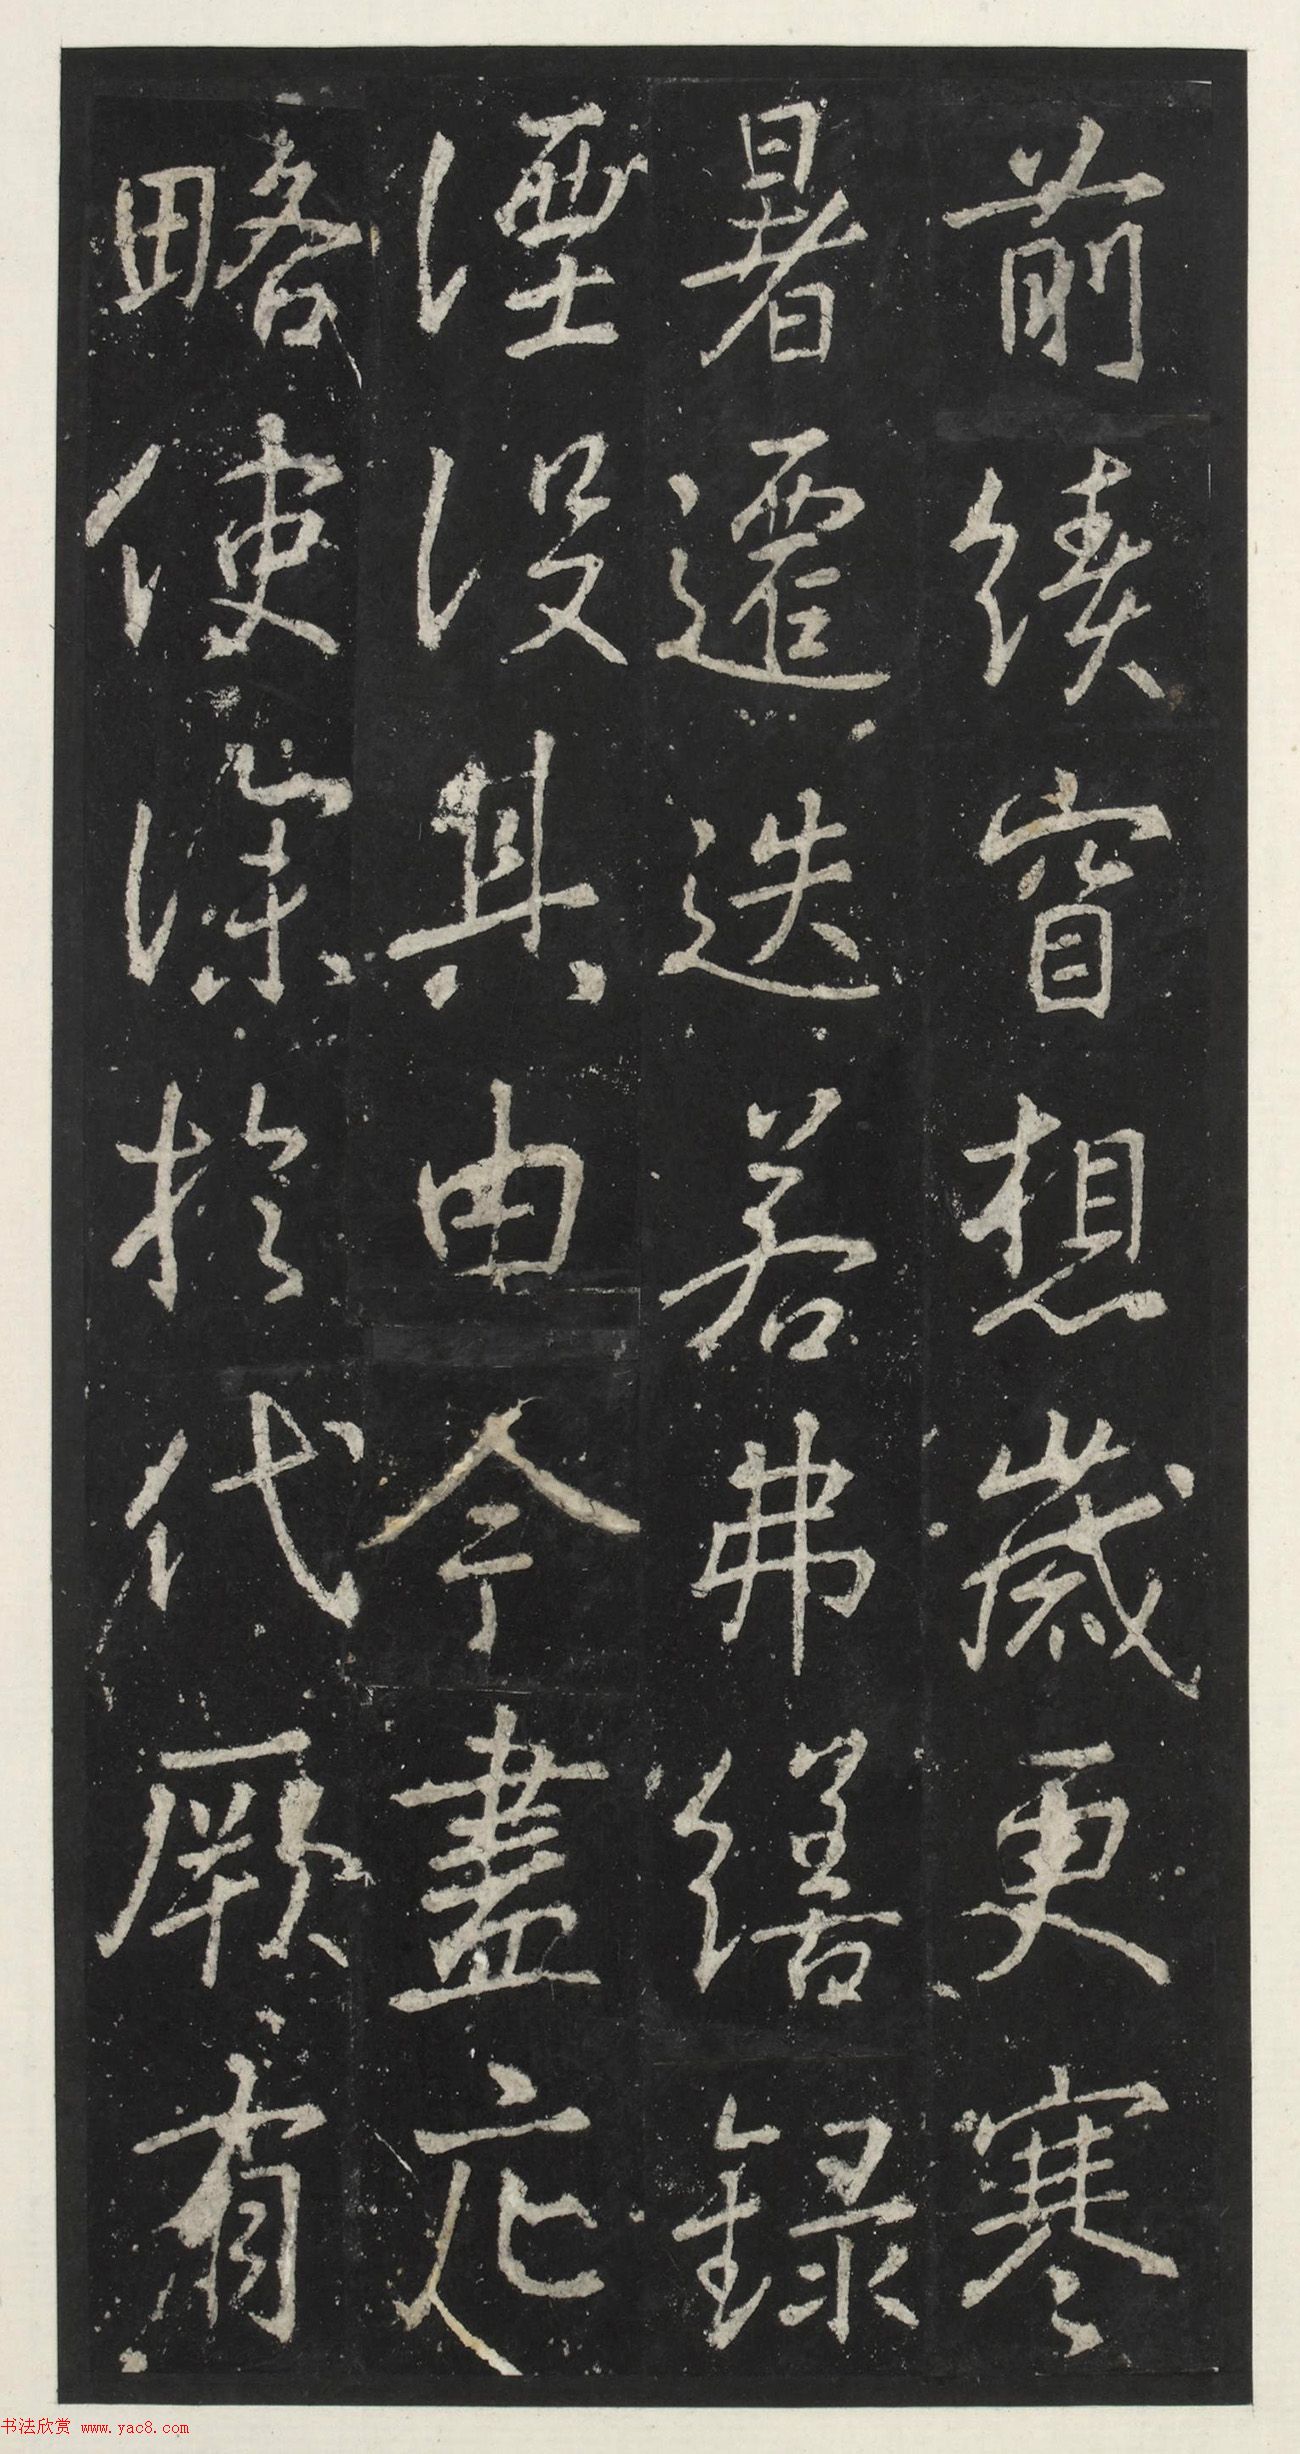 前續窅想歲更寒
暑遷迭若弗繕錄
湮没其由今盡疕
略使深於代厥有
书法欣赏 www.yac8.com